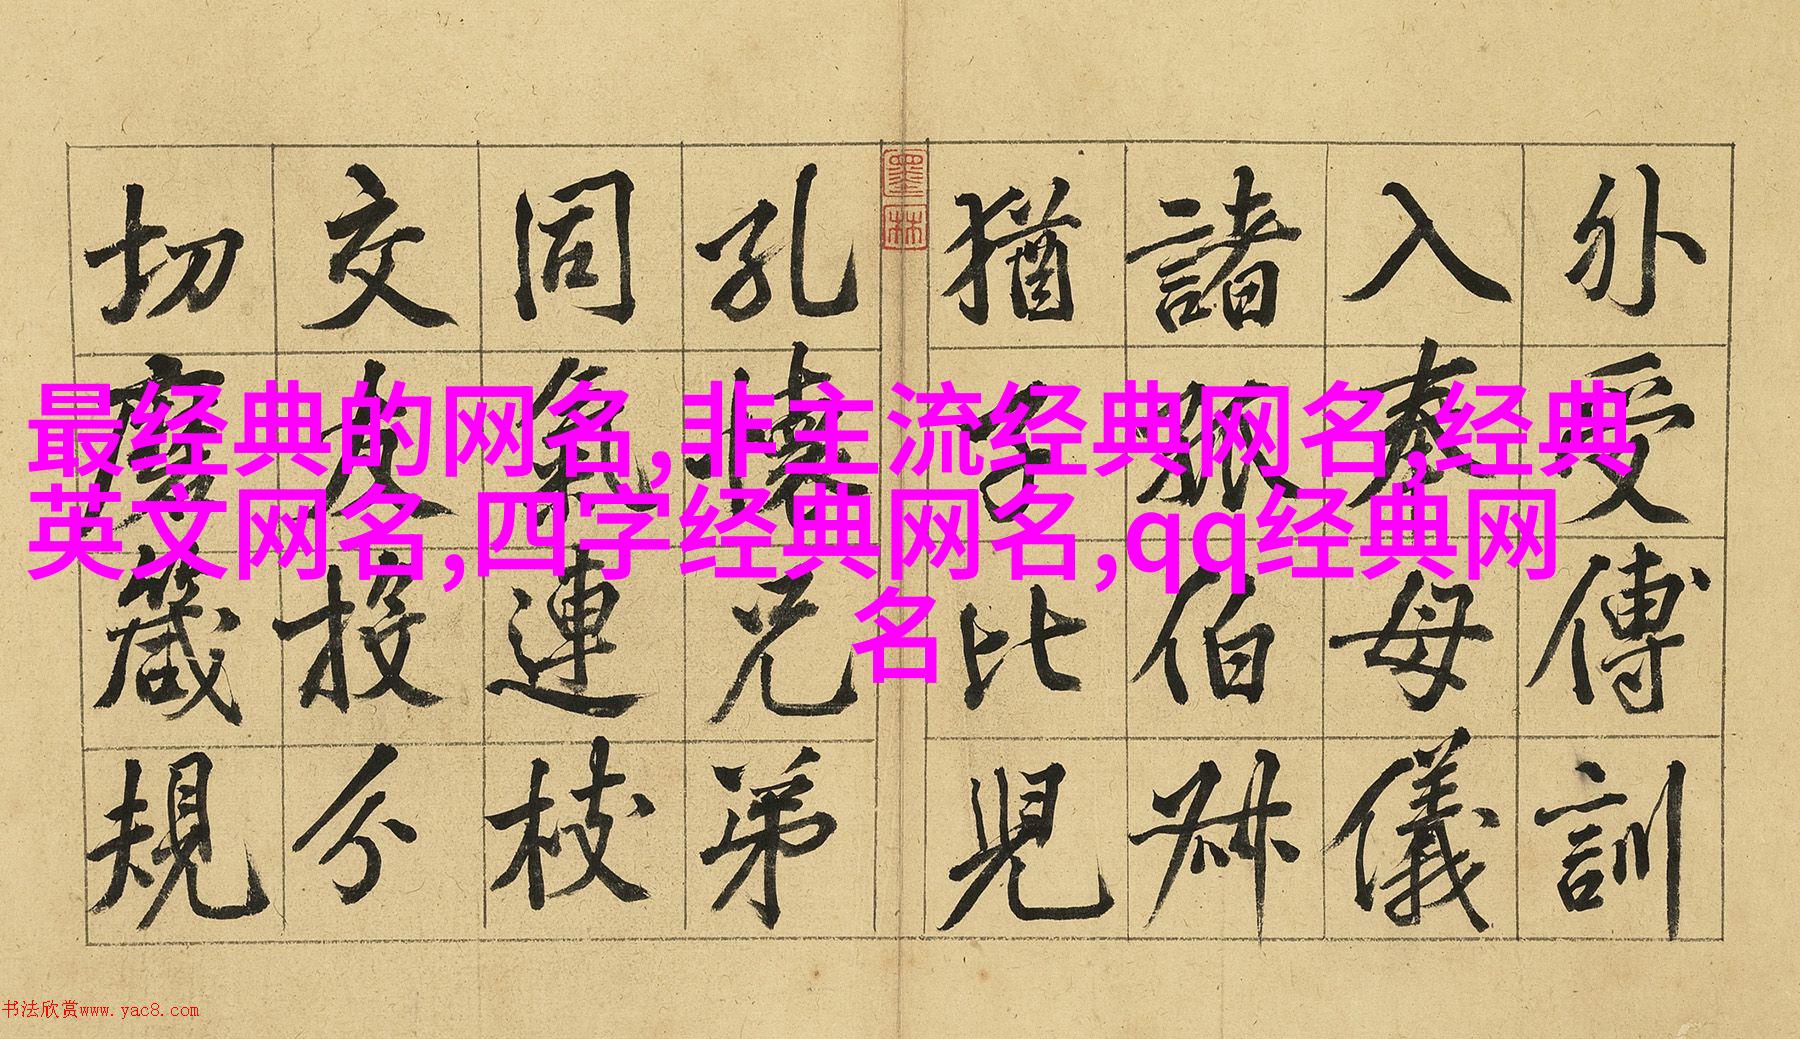 最经典的网名,非主流经典网名,经典
英文网名,四字经典网名,qq经典网
名
外受傅訓
入奉母儀
諸伯叔
猶子比兒
孔懷兄弟
同氣連枝
交友投分
切磨箴規
墨林
书法欣赏www.yac8.com